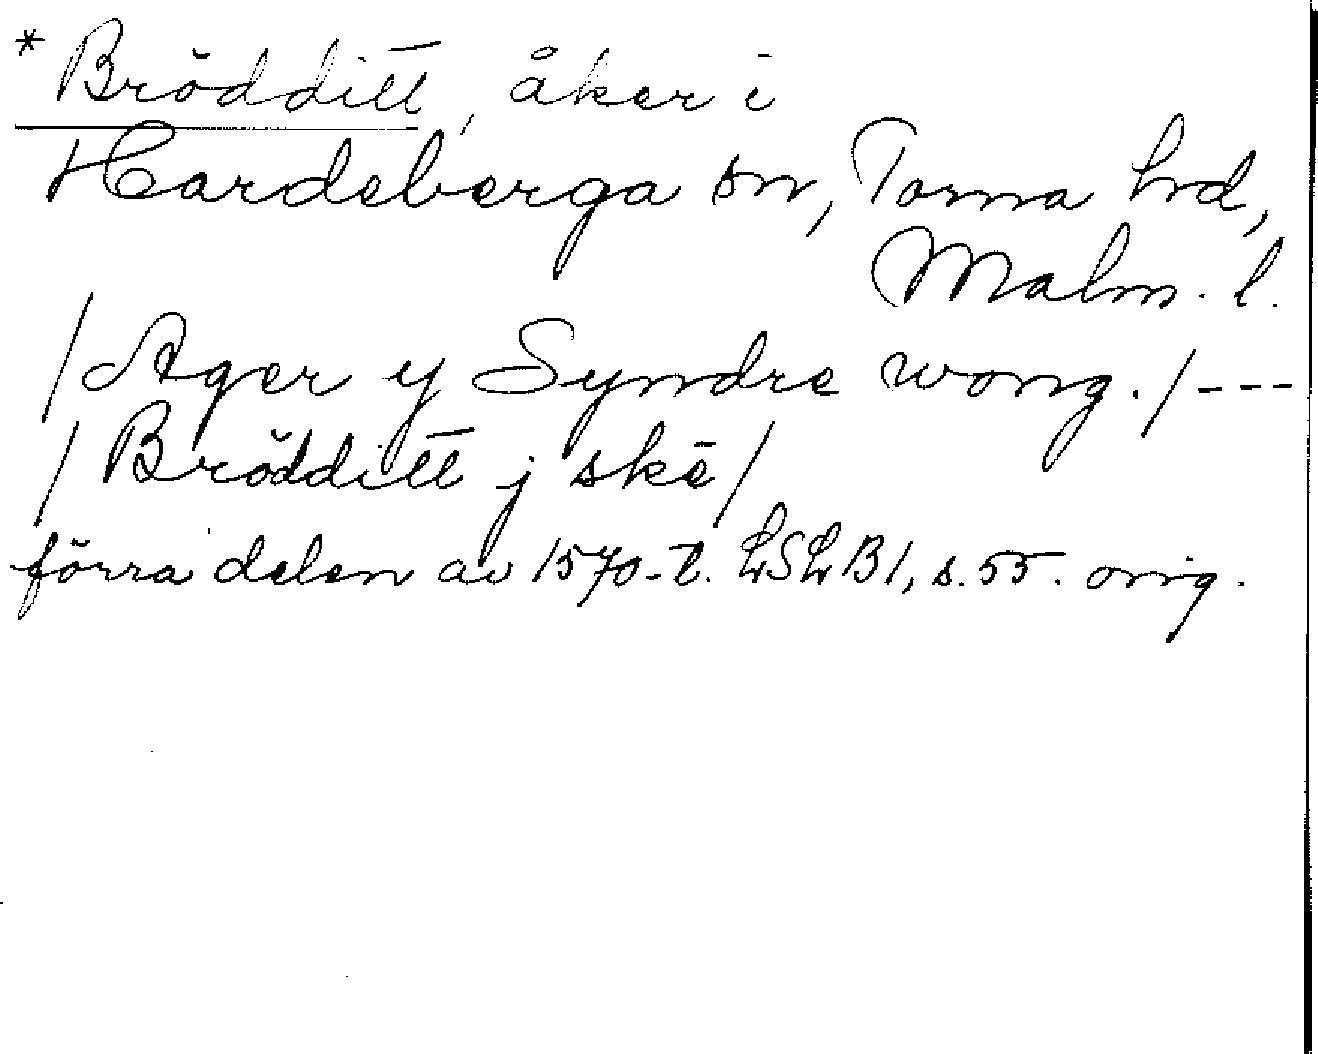 *Brödditt, åker i
Hardeberga sn, Torna hrd,
Malm. l.
/Ager y Syndre wong./---
/Brödditt j skē/
förra delen av 1570-t. LSLB1, s. 55. orig.